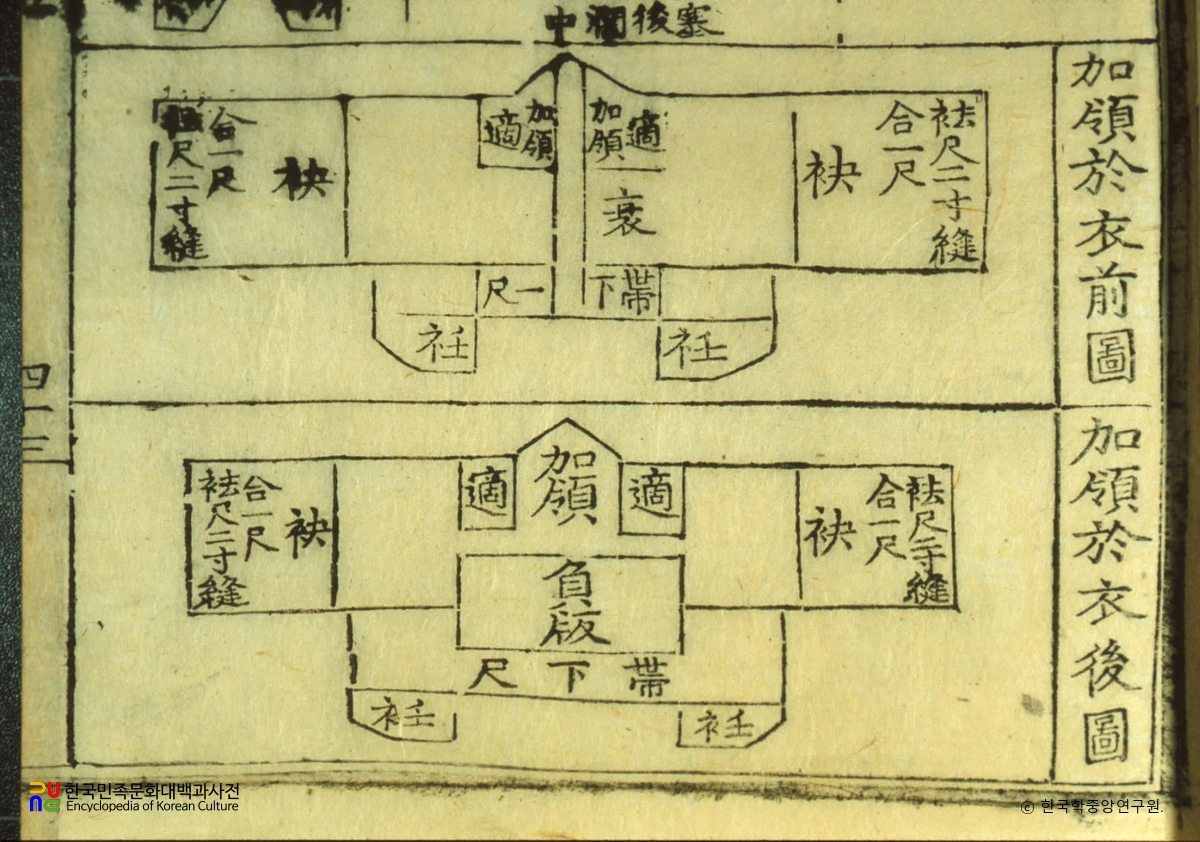 中濶後塞
加領於衣前圖
袪尺二寸縫
合一尺
袂
適
加領
衰
加領
適
袂
合一尺
尺二寸縫
帶下
尺一
衽
衽
加領於衣後圖
袪尺二寸縫
合一尺
袂
適
加領
適
袂
合一尺
袪尺二寸縫
負版
帶下尺
衽
衽
四十三
한국민족문화대백과사전
Encyclopedia of Korean Culture
© 한국학중앙연구원.